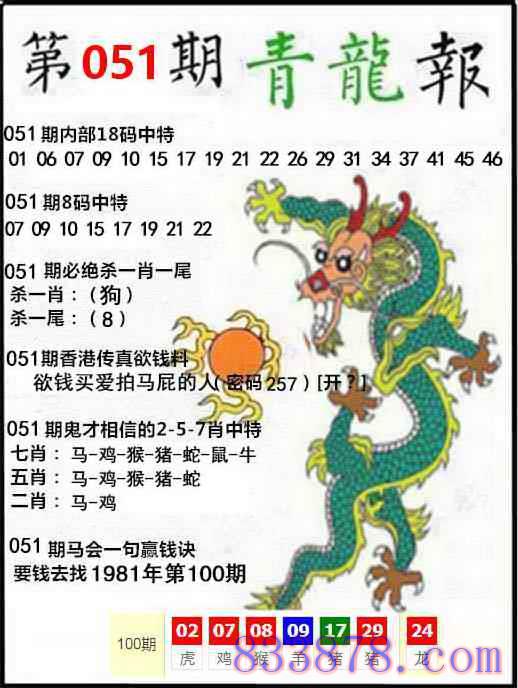 第051期青龍報
051期内部18码中特
01 06 07 09 10 15 17 19 21 22 26 29 31 34 37 41 45 46
051期8码中特
07 09 10 15 17 19 21 22
051 期必绝杀一肖一尾
杀一肖：（狗）
杀一尾：（8）
051期香港传真欲钱料
欲钱买爱拍马屁的人(密码257)[开？]
051期鬼才相信的2-5-7肖中特
七肖：马-鸡-猴-猪-蛇-鼠-牛
五肖：马-鸡-猴-猪-蛇
二肖：马-鸡
051期马会一句赢钱诀
要钱去找1981年第100期
100期 02 07 08 09 17 29 24
虎 鸡 猴 羊 猪 猪 龙
833878.com